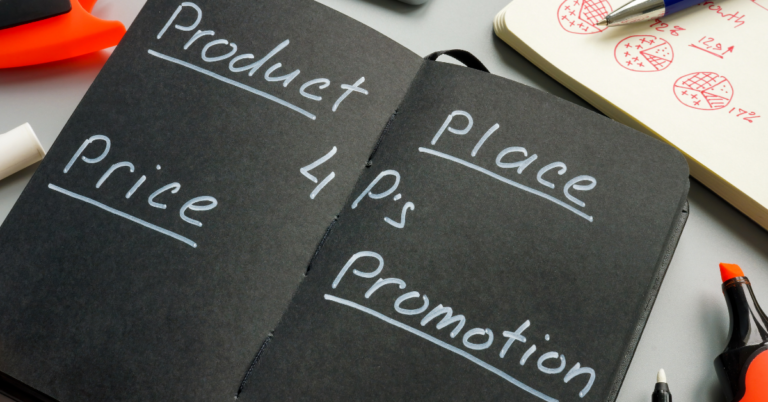 Product
Price
4 P's
Place
Promotion
12,9%
17%